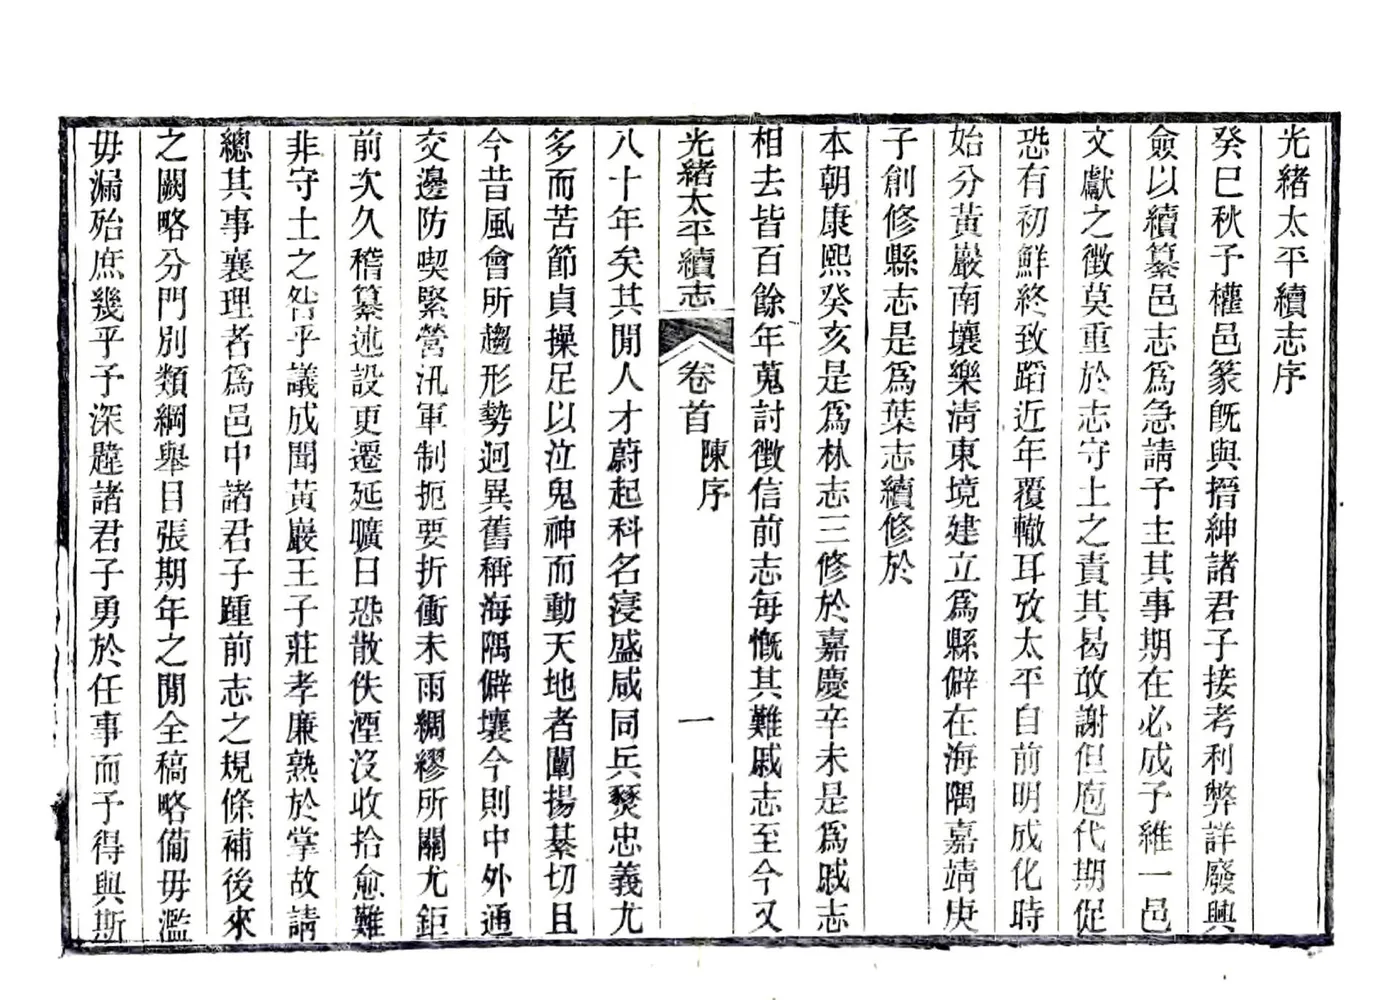 光緒太平續志序
癸巳秋予權邑篆旣與搢紳諸君子接考利弊詳廢興
僉以續纂邑志爲急請予主其事期在必成予維一邑
文獻之徵莫重於志守土之責其曷敢謝但庖代期促
恐有初鮮終致蹈近年覆轍耳攷太平自前明成化時
始分黃巖南壤樂淸東境建立爲縣僻在海隅嘉靖庚
子創修縣志是爲葉志續修於
本朝康熙癸亥是爲林志三修於嘉慶辛未是爲戚志
相去皆百餘年蒐討徵信前志每慨其難戚志至今又
光緒太平續志 卷首 陳序 一
八十年矣其閒人才蔚起科名寖盛咸同兵燹忠義尤
多而苦節貞操足以泣鬼神而動天地者闡揚綦切且
今昔風會所趨形勢迥異舊稱海隅僻壤今則中外通
交邊防喫緊營汛軍制扼要折衝未雨綢繆所關尤鉅
前次久稽纂述設更遷延曠日恐散佚湮沒收拾愈難
非守土之咎乎議成聞黃巖王子莊孝廉熟於掌故請
總其事襄理者爲邑中諸君子踵前志之規條補後來
之闕略分門別類綱舉目張期年之閒全稿略備毋濫
毋漏殆庶幾乎予深韙諸君子勇於任事而予得與斯